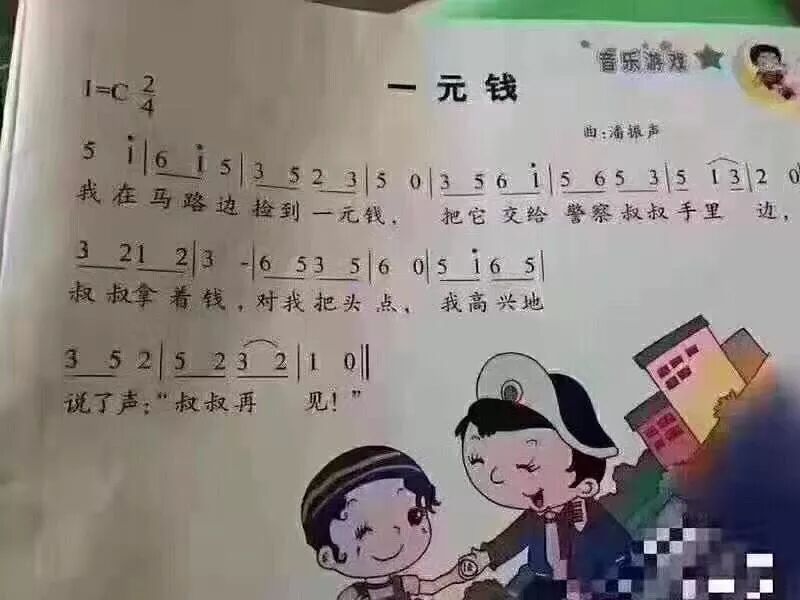 音乐游戏
一元钱
1=C 2/4
曲:潘振声
5 i̇|6 i̇ 5|3 5 2 3|5 0|3 5 6 i̇|5 6 5 3|5 1 3|2 0
我在马路边捡到一元钱, 把它交给警察叔叔手里边,
3 2 1 2|3 -|6 5 3 5|6 0|5 i̇ 6 5|
叔叔拿着钱,对我把头点, 我高兴地
3 5 2|5 2 3 2|1 0‖
说了声:“叔叔再见!”